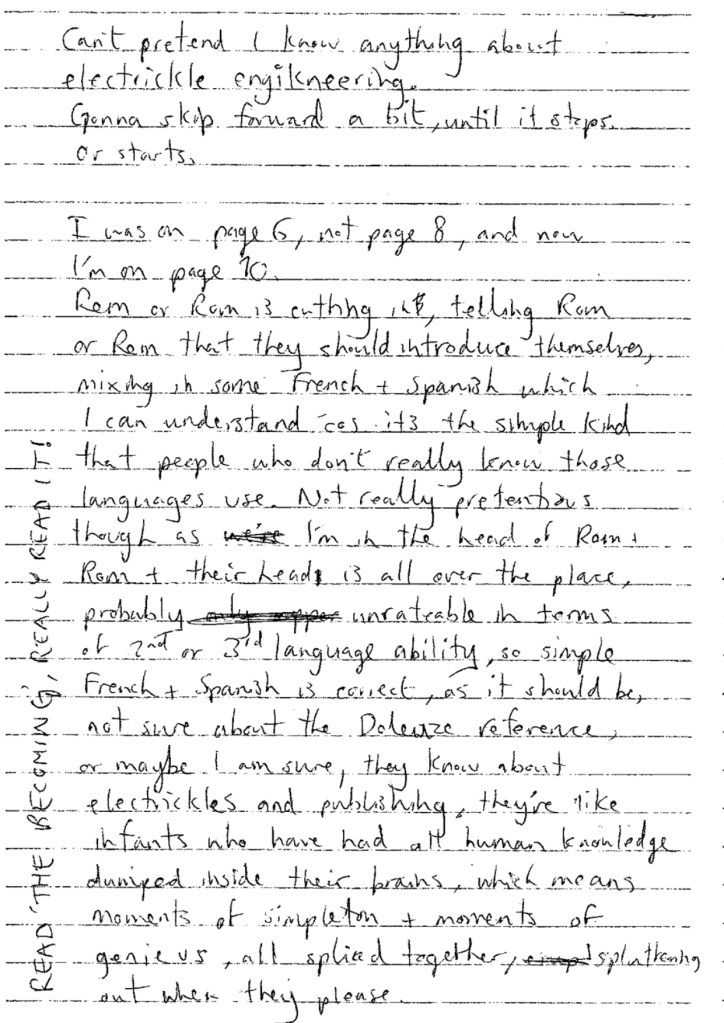 Can't pretend I know anything about
electrickle engikneering.
Gonna skip forward a bit, until it stops.
Or starts.
I was on page 6, not page 8, and now
I'm on page 10.
Rem or Rom is cutting in, telling Rom
or Rem that they should introduce themselves,
mixing in some French + Spanish which
I can understand -cos its the simple kind
that people who don't really know those
languages use. Not really pretentious
though as I'm in the head of Rom +
Rom + their heads is all over the place,
probably unrateable in terms
of 2nd or 3rd language ability, so simple
French + Spanish is correct, as it should be,
not sure about the Doleuze reference,
or maybe I am sure, they know about
electrickles and publishing, they're like
infants who have had all human knowledge
dumped inside their brains, which means
moments of simpleton + moments of
genieus, all spliced together, spluttering
out when they please.
READ 'THE BECOMING', REALLY READ IT!